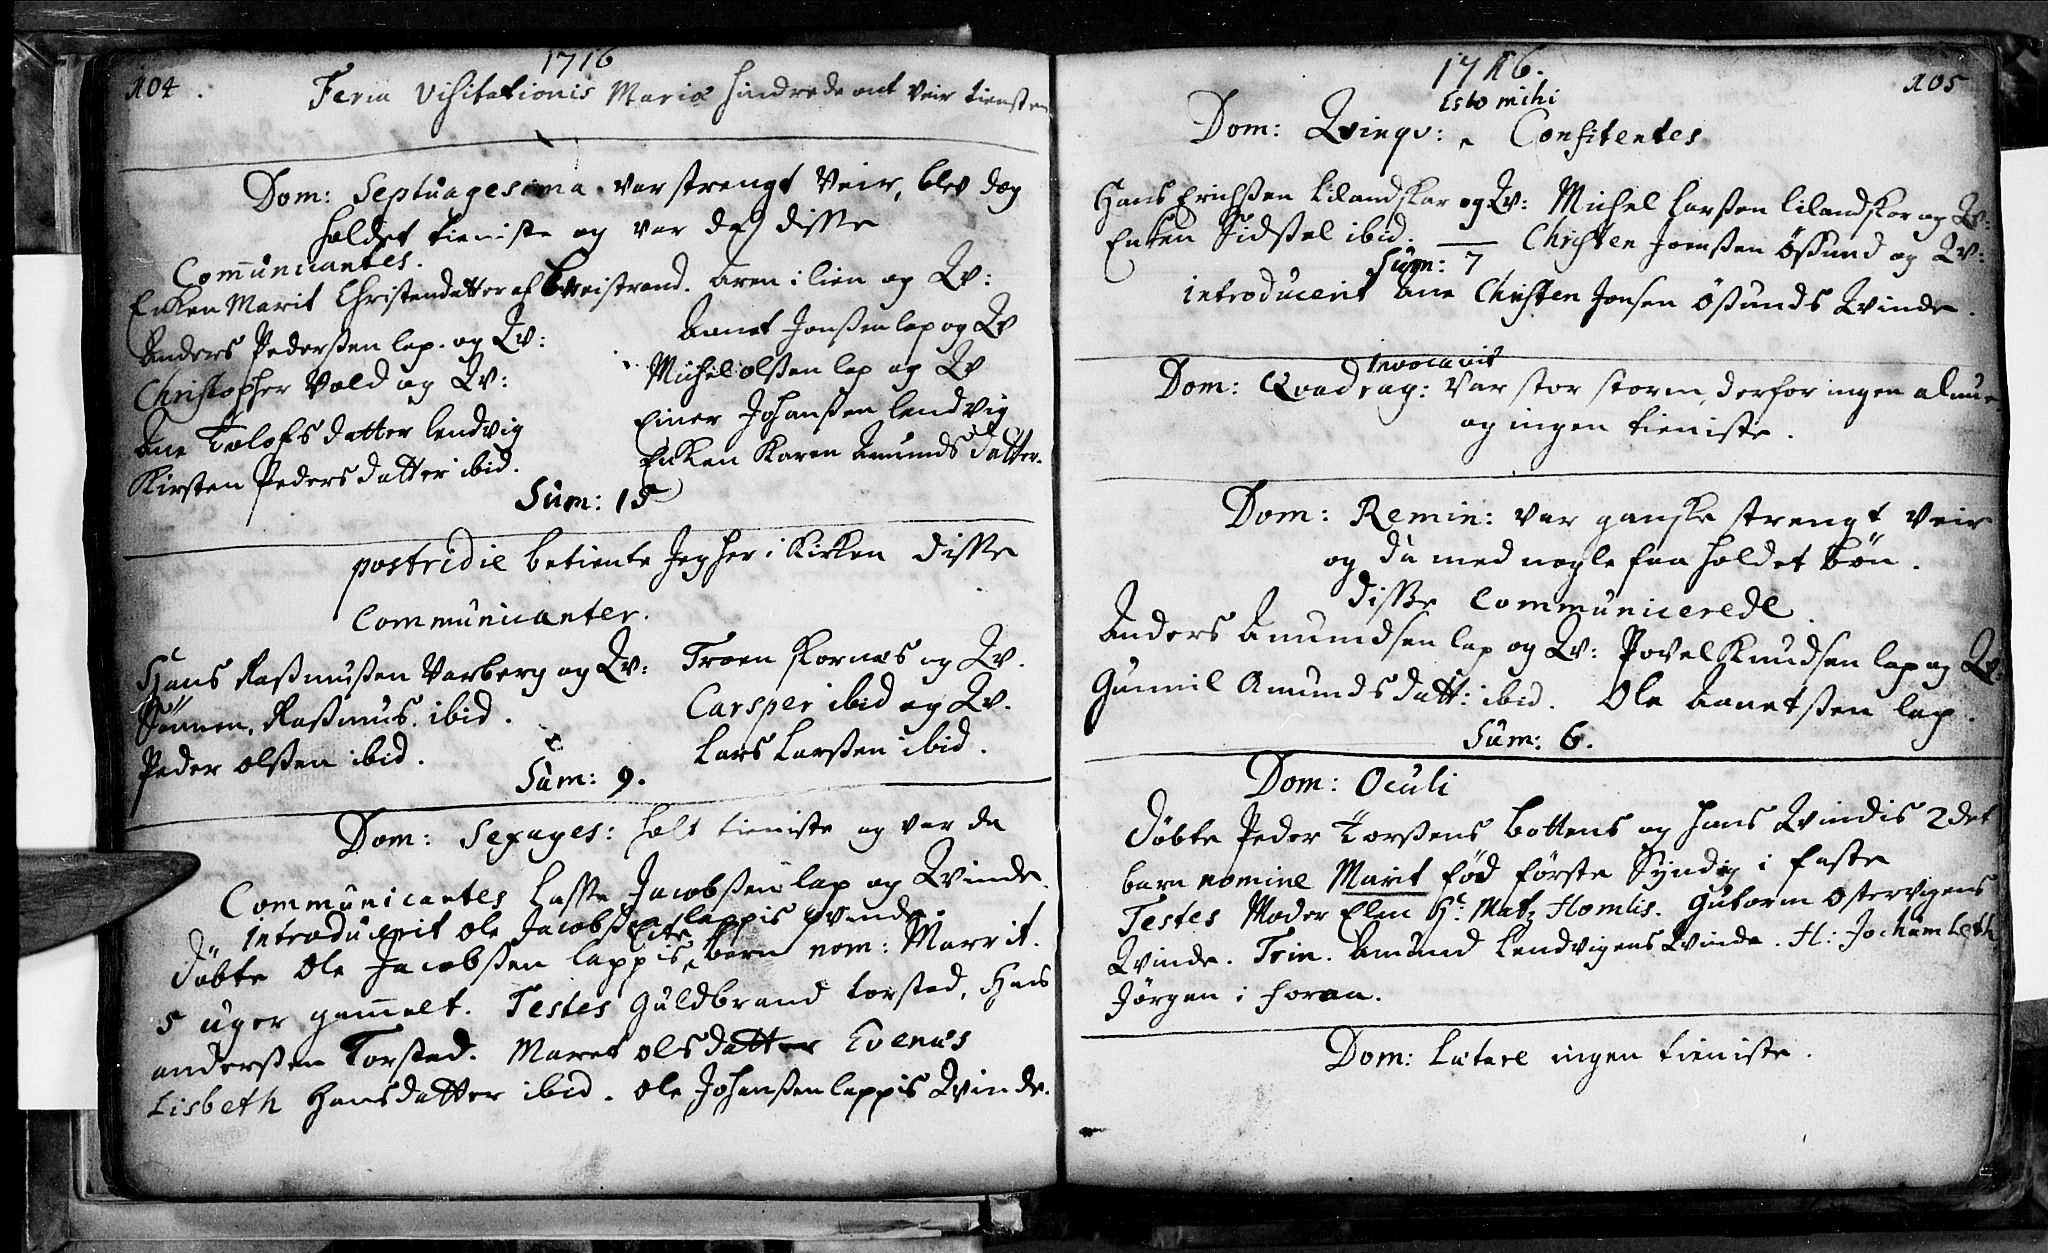 1716
104.
Feria Visitationis Mariæ hindrede ont Veir tiensten
Dom: Septuagesima var strengt Veir, blev dog
holdet tieniste og var da disse
Communicantes.
Enken Marit Christendatter af Breistrand. Aren i lien og Qv:
Anders Pedersen lap. og Qv:
Aanet Jonssen lap og Qv
Christopher Vold og Qv:
Michel olssen lap og Qv
Ane Tolofsdatter lendvig
Einer Johanssen lendvig
Kirsten Pedersdatter ibid.
Enken Karen Amunds datter.
Sum: 15
postridie betiente Jeg her i Kirken disse
Communicanter.
Hans Rasmussen Varberg og Qv:
Troen Kornæs og Qv.
Sönnen, Rasmus. ibid.
Carsper ibid og Qv.
Peder olssen ibid.
Lars Larssen ibid.
Sum: 9.
Dom: Sexages: holt tieniste og var da
Communicantes Lasse Jacobssen lap og Qvinde.
introducerit ole Jacobs lappis qvinde.
döbte Ole Jacobssen lappis barn nom: Marrit.
5 uger gammelt. Testes Guldbrand torsted, Hans
anderssen Torsted. Maret olsdatter Evenæs
Lisbeth Hansdatter ibid. ole Johanssen lappis Qvinde.
1716.
105
Esto mihi
Dom: Qvinqv: Confitentes
Hans Erichssen Lilandskar og Qv: Michel Larssen lilandskar og Qv:
Enken Sidssel ibid. — Christen Jonssen össund og Qv:
Sum: 7
introducerit Ane Christen Jonsen ösunds Qvinde.
Invocavit
Dom: Qvadrag: var stor storm, derfor ingen almue
og ingen tieniste.
Dom: Remin: var ganske strengt Veir
og da med nogle faa holdet bön.
disse Communicerede.
Anders Amundsen lap og Qv: Povel Knudsen lap og Qv:
Gunnil Amunds datt: ibid. Ole Aanetssen lap.
Sum: 6.
Dom: Oculi
döbte Peder Larssens bottens og hans Qvindis 2det
barn nomine Marit föd förste Syndag i faste
Testes Moder Elen Hr. Matz Homlis. Gutorm ostervigens
Qvinde. Trin. Amund Lendvigens Qvinde. H: Jochum Leth
Jörgen i foraa.
Dom: Lætare ingen tieniste.